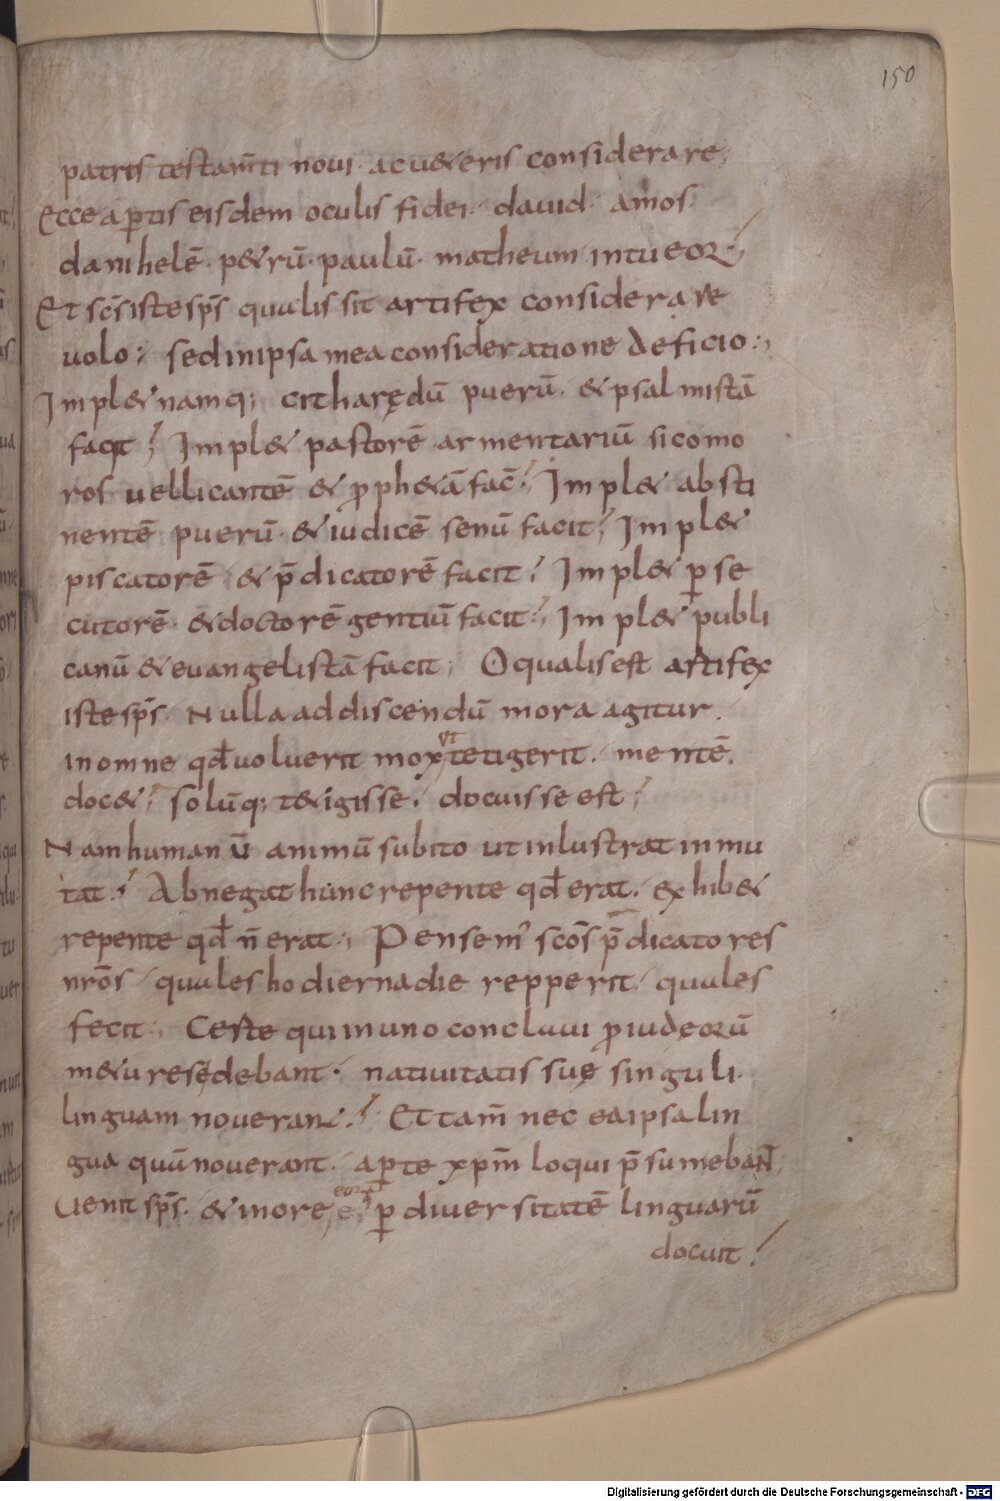 150
patris testam̄ti novi· ac u&eris considerare,
Ecce aꝑtis eisdem oculis fidei· dauid· amos
danihelē· p&rū· paulū· matheum intueor;
Et sc̄s iste sp̄s qualis sit artifex considerare
uolo; sed in ipsa mea consideratione deficio;
Impl& namq; citharędū puerū· & psalmistā
facit; Impl& pastorē armentariū sicomo
ros uellicantē & ꝓph&ā fac̄; Impl& absti
nentē puerū· & iudicē senū facit; Impl&
piscatorē & p̄dicatorē facit; Impl& ꝑse
cutorē· & doctorē gentiū facit; Impl& publi
canū & euangelistā facit; O qualis est artifex
iste sp̄s· Nulla ad discendū mora agitur
ut
in omne qđ uoluerit mox tetigerit· mentē
doc&; solūq; t&igisse· docuisse est;
Nam humanū animū subito ut inlustrat inmu
tat; Abnegat hunc repente qđ erat· exhib&
repente qđ n̄ erat; Pensem' scōs p̄dicatores
nrōs quales hodierna die repperit· quales
fecit; Certe qui in uno conclaui ꝓ iudeorū
m&u resędebant· natiuitatis suę singuli
linguam nouerant; Et tam̄ nec ea ipsa lin
gua quū nouerant· aꝑte xp̄m loqui p̄sumebaɴt
Uenit sp̄s· & in ore eorum ꝑ diuersitatē linguarū
docuit;
Digitalisierung gefördert durch die Deutsche Forschungsgemeinschaft - DFG